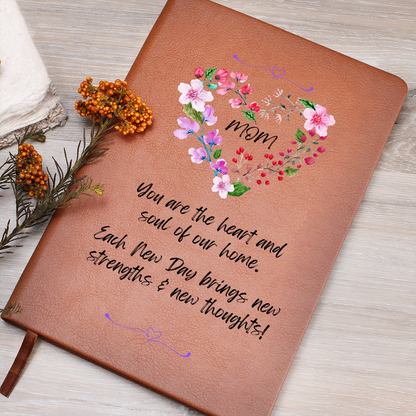 MOM
You are the heart and
soul of our home.
Each New Day brings new
strengths & new thoughts!